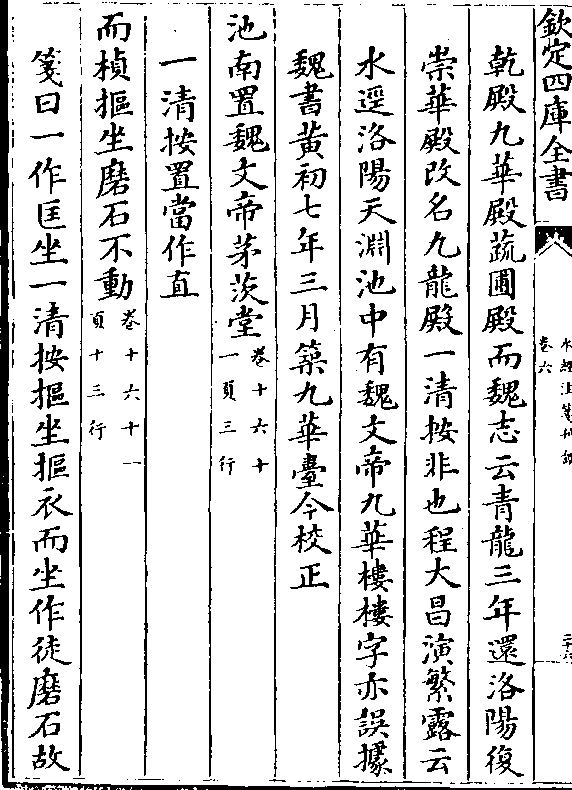 欽定四庫全書
水經注箋刊誤
卷六
乾殿九華殿蔬圃殿而魏志云青龍三年還洛陽復
崇華殿改名九龍殿一清按非也程大昌演繁露云
水逕洛陽天淵池中有魏文帝九華樓樓字亦誤據
魏書黃初七年三月築九華臺今校正
池南置魏文帝茅茨堂卷十六十一頁三行
一清按置當作直
而楨摳坐磨石不動卷十六十一頁十三行
箋曰一作匡坐一清按摳坐摳衣而坐作徒磨石故